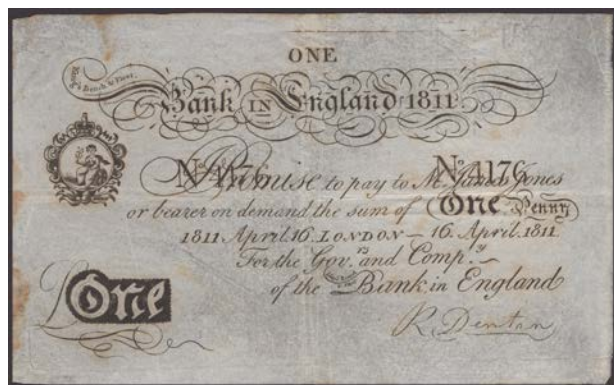 ONE
King's Bench & Fleet.
Bank IN England 1811
Nº 4176 Nº 4176
Promise to pay to Mr. James Jones
or bearer on demand the sum of One Penny
1811 April.16. LONDON — 16. April. 1811
For the Gov.rs and Comp.y
of the Bank in England
£One
R. Denton